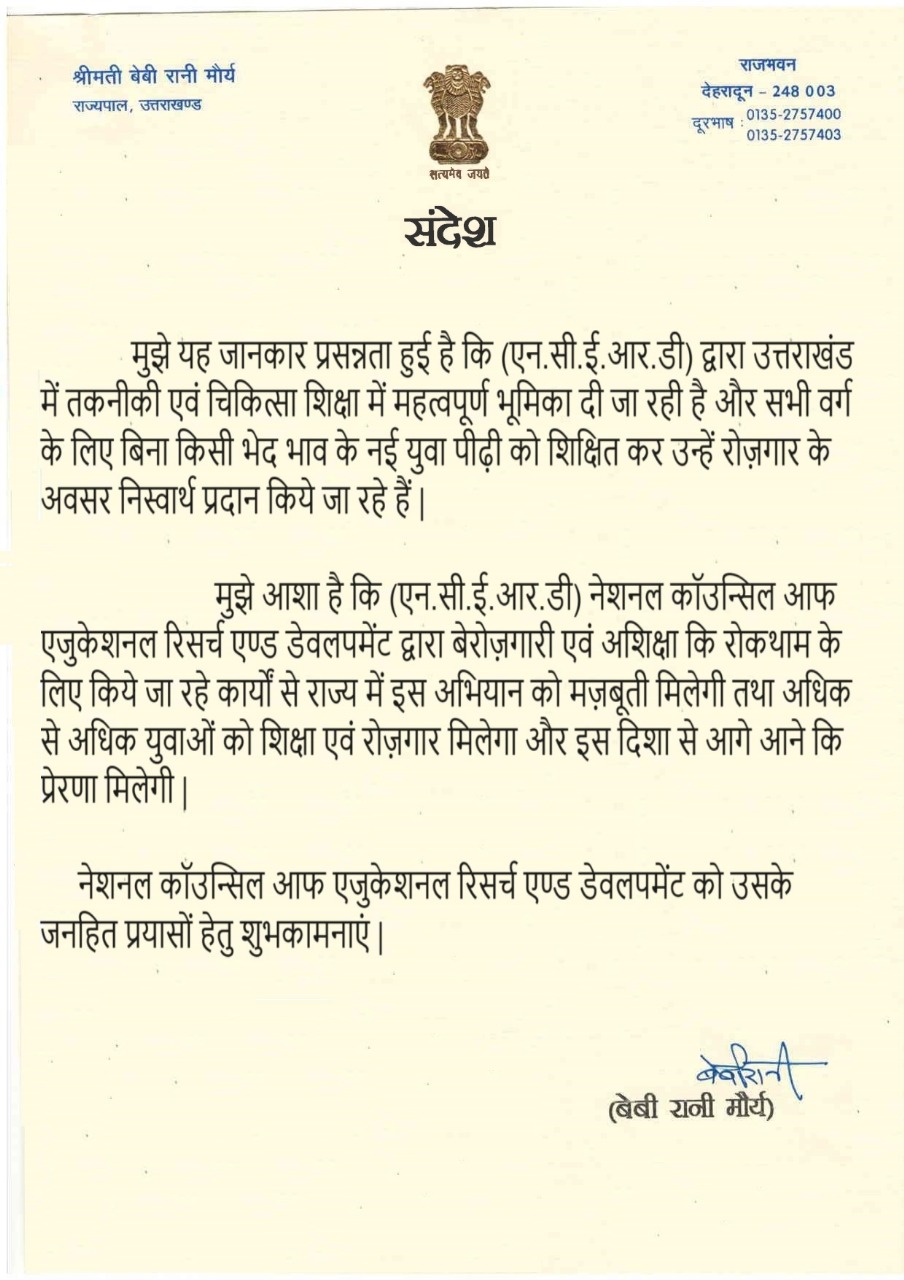 श्रीमती बेबी रानी मौर्य
राज्यपाल, उत्तराखण्ड
राजभवन
देहरादून – 248 003
दूरभाष : 0135-2757400
0135-2757403
सत्यमेव जयते
संदेश
मुझे यह जानकार प्रसन्नता हुई है कि (एन.सी.ई.आर.डी) द्वारा उत्तराखंड
में तकनीकी एवं चिकित्सा शिक्षा में महत्वपूर्ण भूमिका दी जा रही है और सभी वर्ग
के लिए बिना किसी भेद भाव के नई युवा पीढ़ी को शिक्षित कर उन्हें रोज़गार के
अवसर निस्वार्थ प्रदान किये जा रहे हैं|
मुझे आशा है कि (एन.सी.ई.आर.डी) नेशनल कॉउन्सिल आफ
एजुकेशनल रिसर्च एण्ड डेवलपमेंट द्वारा बेरोज़गारी एवं अशिक्षा कि रोकथाम के
लिए किये जा रहे कार्यों से राज्य में इस अभियान को मज़बूती मिलेगी तथा अधिक
से अधिक युवाओं को शिक्षा एवं रोज़गार मिलेगा और इस दिशा से आगे आने कि
प्रेरणा मिलेगी|
नेशनल कॉउन्सिल आफ एजुकेशनल रिसर्च एण्ड डेवलपमेंट को उसके
जनहित प्रयासों हेतु शुभकामनाएं|
बेबीरानी
(बेबी रानी मौर्य)